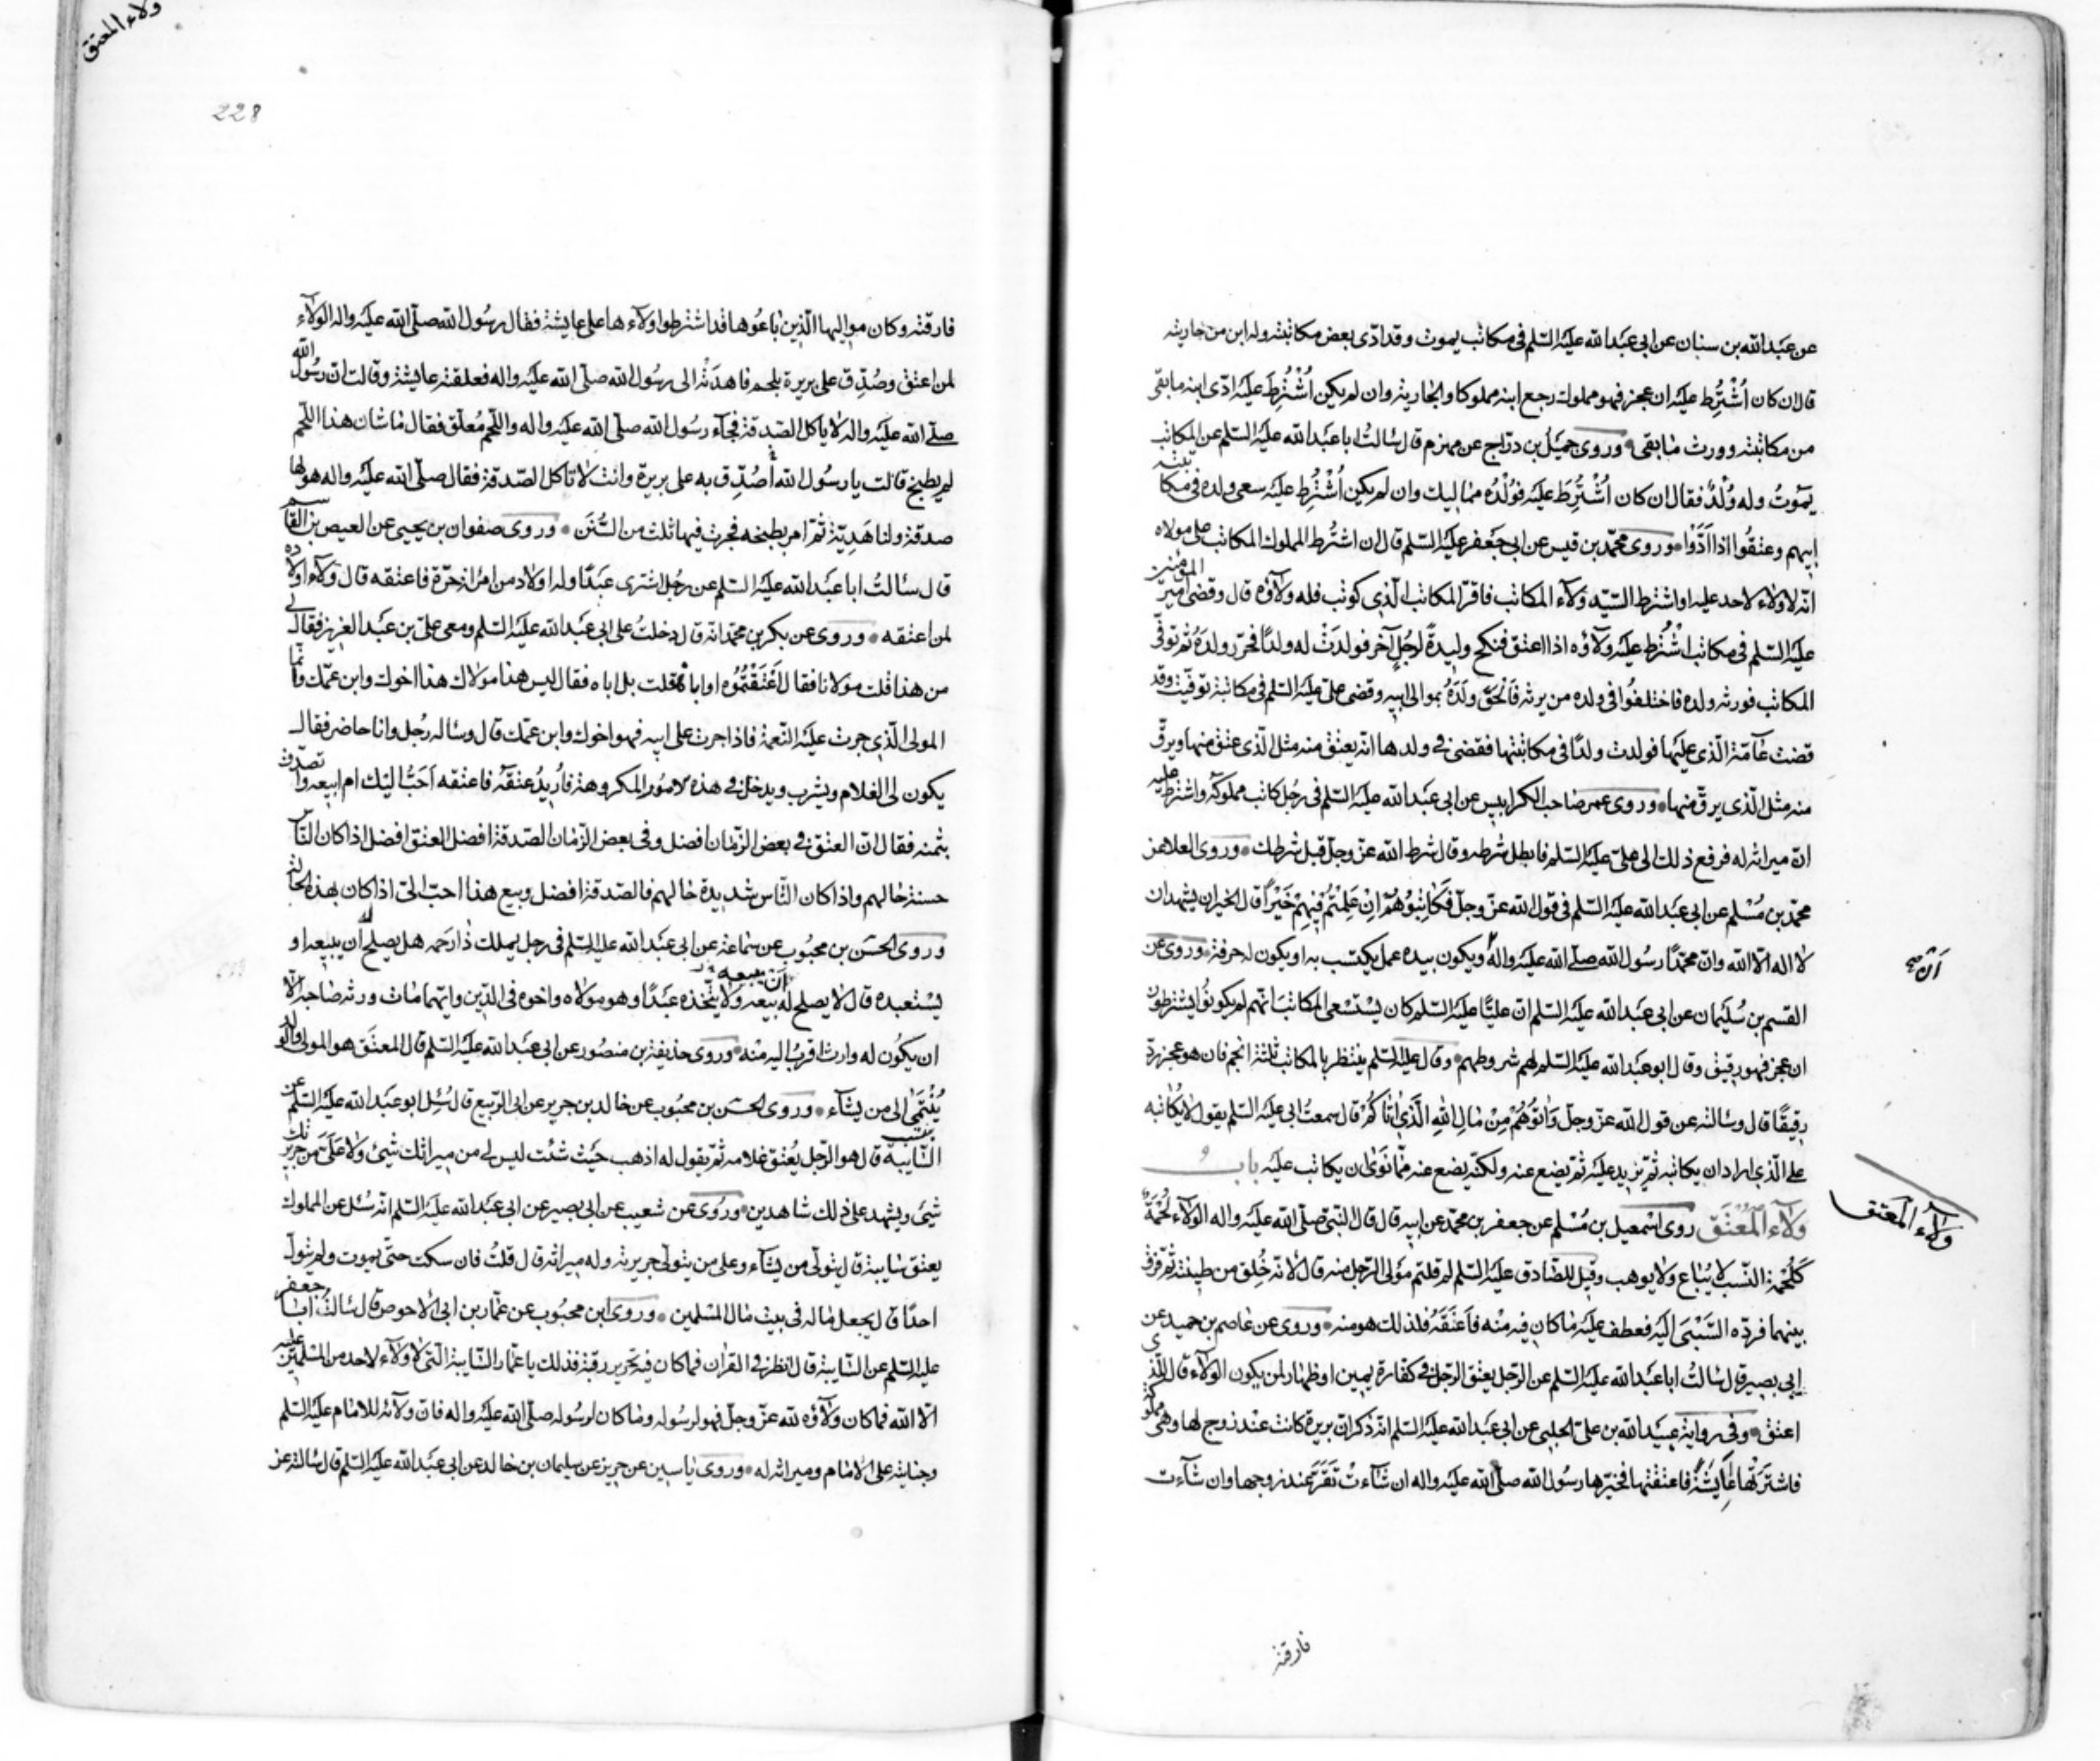 عن عبد الله بن سنان عن ابي عبد الله عليه السلم في مكاتب يموت وقد ادّى بعض مكاتبته وله ابن من جاريته
قال ان كان اُشْتُرِط عليه ان عجز فهو مملوك رجع ابنه مملوكا والجارية وان لم يكن اُشْتُرِطَ عليه ادّى ابنه ما بقى
من مكاتبته وورث ما بقى وروى جميل بن درّاج عن مهزم قال سالتُ ابا عبد الله عليه السلم عن المكاتب
يموتُ وله وُلْدٌ فقال ان كان اُشْتُرِطَ عليه فوُلْدُه مماليك وان لم يكن اُشْتُرِط عليه سعى ولده في مكاتبته
ابيهم وعتقُوا اذا ادَّوْا وروى محمّد بن قيس عن ابي جعفر عليه السلم قال ان اشتُرط المملوك المكاتب على مولاه
انّه لا ولاء لاحد عليه او اشترط السيّد ولآء المكاتب فاقرّ المكاتب الّذي كوتب فله ولاؤه قال وقضى امير المؤمنين
عليه السلم في مكاتب اشْتُرط عليه ولآؤه اذا اعتق فنكح وليدةً لرجُل آخر فولدَتْ له ولدًا فحرّر ولدَهُ ثم توفّى
المكاتب فورثه ولده فاختلفُوا في ولده من يرثه فاَلحَقَ ولَدَهُ بموالى ابيه وقضى علىّ عليه السلم في مكاتبة توفّيت وقد
قضت عآمّة الّذى عليها فولدت ولدًا في مكاتبتها فقضى في ولدها انّه يعتق منه مثل الّذى عتق منها ويرقّ
منه مثل الّذى يرقّ منها وروى عمر صاحب الكرابيس عن ابي عبد الله عليه السلم في رجُل كاتب مملوكَه واشترط عليه
انّ ميراثه له فرفع ذلك الى علىّ عليه السلم فابطل شرطه وقال شرط الله عزّ وجلّ قبل شرطك وروى العلا عن
محمّد بن مُسْلم عن ابي عبد الله عليه السلم في قول الله عزّ وجلّ فَكَاتِبُوهُمْ اِنْ عَلِمْتُمْ فيهِمْ خَيْراً قال الخير ان يشهد ان
لا اله الّا الله وانّ محمّدًا رسُول الله صلّى الله عليه واله ويكون بيده عمل يكتسب به او يكون له حرفة وروى عن
القسم بن سُليمان عن ابي عبد الله عليه السلم انّ عليًّا عليه السلم كان يسْتَسْعى المكاتبَ انّهم لم يكونُوا يشترطون
ان عجز فهو رقيق وقال ابو عبد الله عليه السلم لهم شروطهم وقال عليه السلم ينتظر بالمكاتب ثلثة انجم فان هو عجز ردّ
رقيقًا قال وسالته عن قول الله عزّ وجلّ وَاٰتُوهُمْ مِنْ مٰالِ اللهِ الَّذي اٰتٰاكُمْ قال سمعتُ ابي عليه السلم يقول لا يكاتبه
على الّذي اراد ان يكاتبه ثمّ يزيد عليه ثمّ يضع عنه ولكنّه يضع عنه ممّا نوَىٰ ان يكاتب عليه باب
وَلآءِ الْمُعْتَق روى اسْمعيل بن مُسْلم عن جعفر بن محمّد عن ابيه قال قال النبيّ صلّى الله عليه واله الولآء لُحْمَةٌ
كَلُحْمَةِ النّسب لا يُبٰاع ولا يوهب وقيل للصّادق عليه السلم لم قلتم مَوْلى الرّجل منه قال لانّه خُلق من طينته ثم فرّق
بينهما فردّه السَّبْىَ اليه فعطف عليه ما كان فيه منْه فاَعتقَه فلذلك هو منه وروى عن عاصم بن حميد عن
ابي بصير قال سالتُ ابا عبد الله عليه السلم عن الرّجل يعتق الرّجل في كفّارة يمين او ظهار لمن يكون الولآء قال للّذى
اعتق وفي رواية عبيد الله بن علىّ الحلبى عن ابي عبد الله عليه السلم انّه ذكر انّ بريرة كانت عند زوج لها وهى مملوكة
فاشترَتْها عايشةُ فاعتقتها فخيّرها رسُول الله صلّى الله عليه واله ان شآءت تَقَرّ عند زوجها وان شآءت
ولآء المعتق
فارقته
ولاء المعتق
228
فارقته وكان مواليها الّذين باعُوها قد اشترطوا ولآءها على عايشة فقال رسُول الله صلّى الله عليه واله الولآء
لمن اعتق وصُدِّق على بريرة بلحم فاهدَتْه الى رسُول الله صلّى الله عليه واله فعلقته عايشة وقالت انّ رسُول الله
صلّى الله عليه واله لا ياكل الصّدقة فجآء رسُول الله صلّى الله عليه واله واللّحم مُعلّق فقال ما شان هذا اللّحم
لم يطبخ قالت يا رسُول الله اُصُدِّق به على بريرة وانت لا تاكل الصّدقة فقال صلّى الله عليه واله هو لها
صدقة ولنا هَدِيّة ثمّ امر بطبخه فجرت فيها ثلث من السُّنَن وروى صفوان بن يحيى عن العيص بن القاسم
قال سالتُ ابا عبد الله عليه السلم عن رجُل اشترى عبدًا وله اولاد من امراة حرّة فاعتقه قال ولآء اولاده
لمن اعتقه وروى عن بكر بن محمّد انّه قال دخلتُ على ابي عبد الله عليه السلم ومعى علىّ بن عبد العزيز فقال لى
من هذا قلت مولانا فقال اَعْتَقْتُمُوه او اباه قلت بل اباه فقال ليس هذا مولاك هذا اخوك وابن عمّك وانّما
المولى الّذي جرت عليه النّعمة فاذا جرت على ابيه فهو اخوك وابن عمّك قال وساله رجُل وانا حاضر فقال
يكون لى الغلام ويشرب ويدخل في هذه الامُور المكروهة فاُريدُ عتقَه فاعتقه اَحَبُّ اليك ام ابيعه واتصدّق
بثمنه فقال انّ العتق في بعض الزّمان افضل وفى بعض الزّمان الصّدقة افضل العتق افضل اذا كان النّاس
حسنة حالهم واذا كان النّاس شديدة حالهم فالصّدقة افضل وبيع هذا احبّ الىّ اذا كان بهذه الحال
وروى الحسَن بن محبُوب عن سَماعة عن ابي عبد الله عليه السلم في رجل يملك ذا رَحم هل يصلح له ان يبيعه او
يسْتعبده قال لا يصلح له اَن يبيعه ولا يتّخذه عبَدًا وهو مولاه واخوه في الدّين وايّهما مات ورثه صاحبه الّا
ان يكُون له وارث اقربُ اليه منه وروى حذيفة بن منصُور عن ابي عبد الله عليه السلم قال المعتَق هو المولى والولد
يُنْتَمٰى الى من يشآء وروى الحسَن بن محبُوب عن خالد بن جرير عن ابي الرّبيع قال سُئِل ابو عبد الله عليه السلم عن
السّايبة قال هو الرّجل يُعتق غلامه ثمّ يقول له اذهب حيث شئت ليس لى من ميراثك شيئ ولا عَلىَّ من جريرتك
شيئ ويشهد على ذلك شاهدين ورُوى عن شعيب عن ابي بصير عن ابي عبد الله عليه السلم انّه سُئل عن المملوك
يعتق سايبة قال يتولّى من يشآء وعلى من يتولّى جريرته وله ميراثه قال قلتُ فان سكت حتّى يموت ولم يتولّ
احدًا قال يجعل ماله في بيت مال المسْلمين وروى ابن محبُوب عن عمّار بن ابي الاحوص قال سالتُ ابا جعفر
عليه السلم عن السّايبة قال انظر في القرآن فما كان فيه تحرير رقبة فذلك يا عمّار السّايبة الّتى لا ولآء لاحد من المسلمين عليه
الّا الله فما كان ولآؤه لله عزّ وجلّ فهو لرسُوله وما كان لرسُوله صلّى الله عليه واله فانّ ولآئه للامام عليه السلم
وجنايته على الامام وميراثه له وروى ياسين عن حريز عن سليمان بن خالد عن ابي عبد الله عليه السلم قال سالته عن